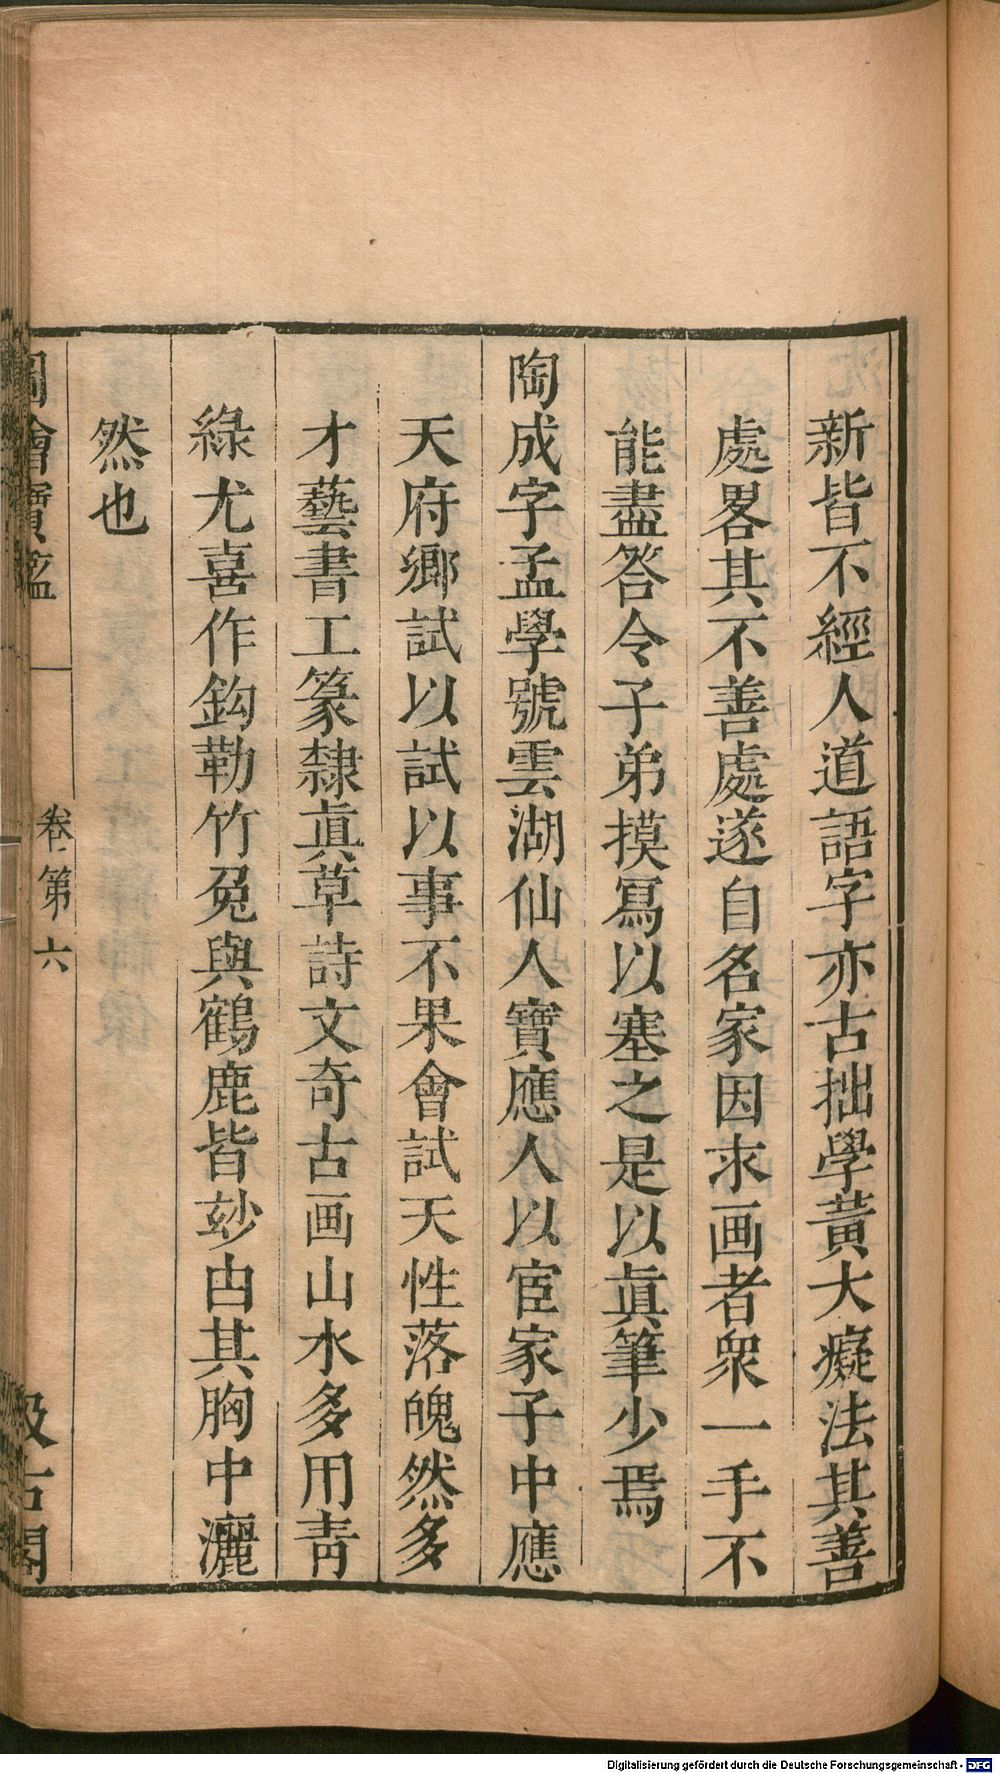 新皆不經人道語字亦古拙學黃大癡法其善
處畧其不善處遂自名家因求画者衆一手不
能盡答令子弟摸冩以塞之是以眞筆少焉
陶成字孟學號雲湖仙人寶應人以宦家子中應
天府鄉試以試以事不果會試天性落魄然多
才藝書工篆隸眞草詩文奇古画山水多用靑
綠尤喜作鈎勒竹兔與鶴鹿皆妙甴其胸中灑
然也
圖繪寶鑑
卷第六
汲古閣
Digitalisierung gefördert durch die Deutsche Forschungsgemeinschaft - DFG